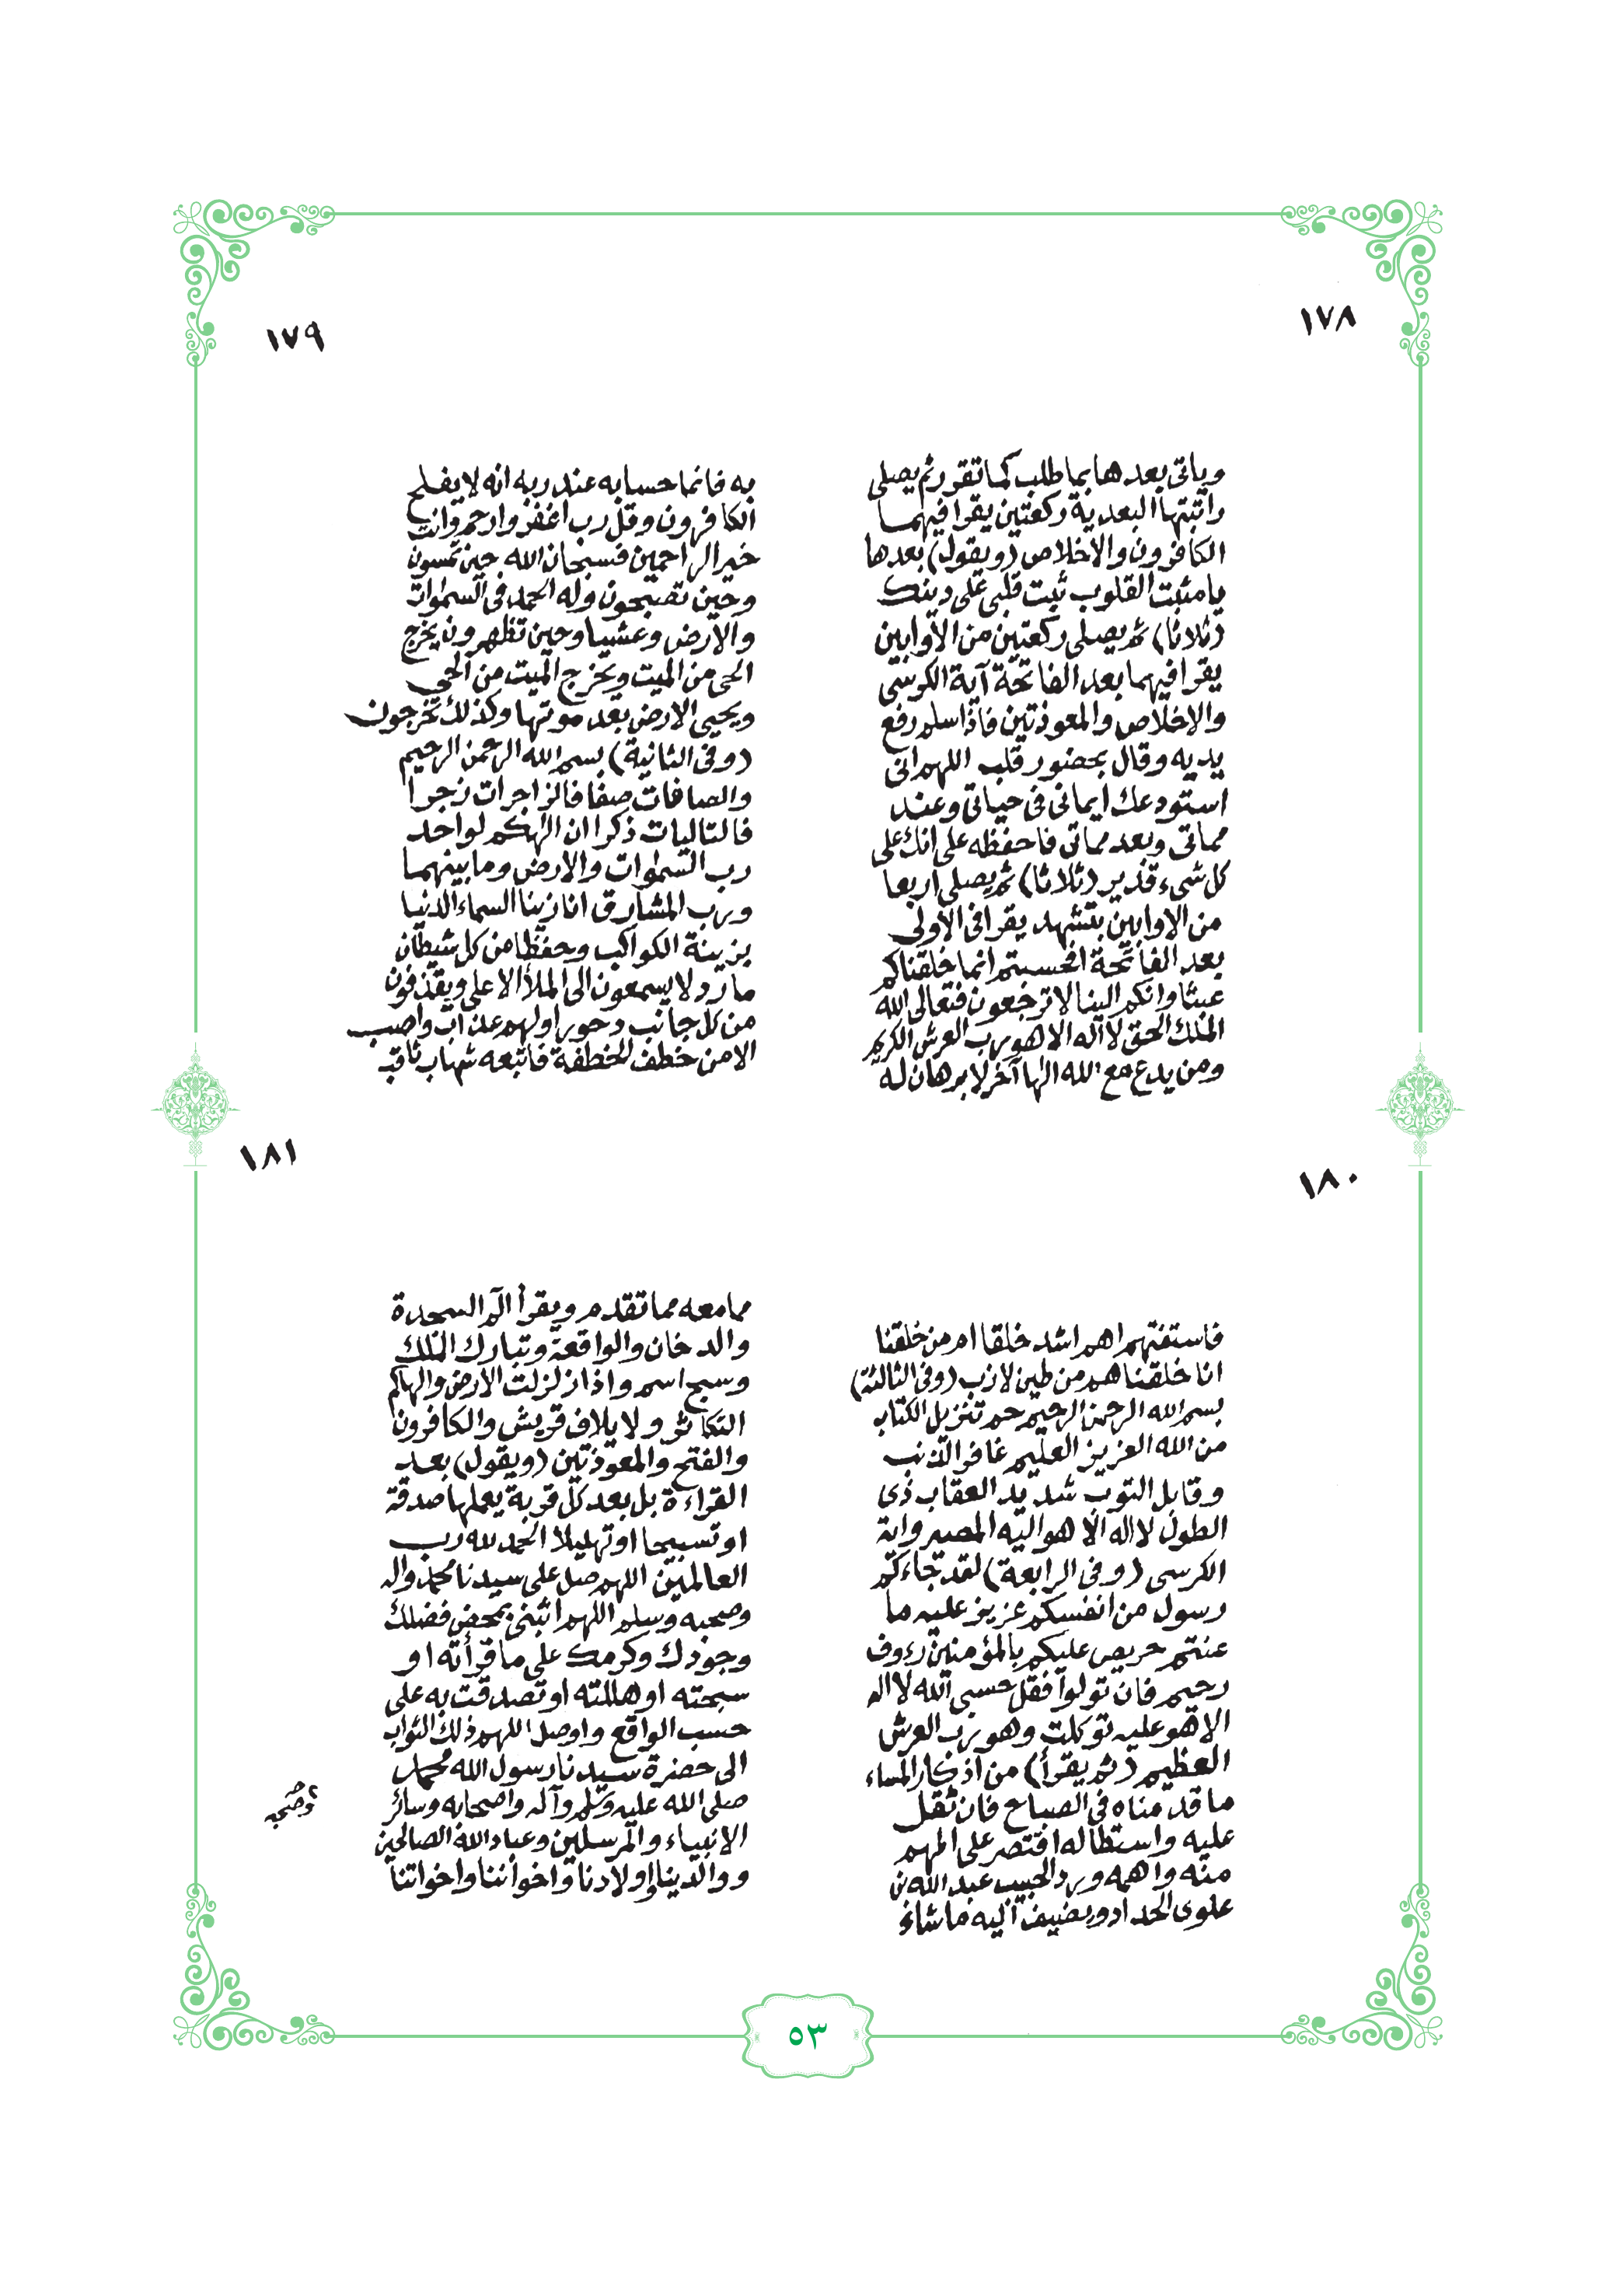 ١٧٨
وياتى بعدها بما طلب كما تقرر ثم يصلى
راتبتها البعدية ركعتين يقرا فيهما
الكافرون والاخلاص (ويقول) بعدها
يا مثبت القلوب ثبت قلبى على دينك
(ثلاثا) ثم يصلى ركعتين من الأوابين
يقرا فيهما بعد الفاتحة آية الكرسى
والاخلاص والمعوذتين فاذا سلم رفع
يديه وقال بحضور قلب اللهم انى
استودعك ايمانى فى حياتى وعند
مماتى وبعد مماتى فاحفظه على انك على
كل شىء قدير (ثلاثا) ثم يصلى اربعا
من الاوابين بتشهد يقرا فى الأولى
بعد الفاتحة افحسبتم انما خلقناكم
عبثا وانكم الينا لا ترجعون فتعالى الله
الملك الحق لا اله الا هو رب العرش الكريم
ومن يدع مع الله الها آخر لا برهان له
١٧٩
به فانما حسابه عند ربه انه لا يفلح
الكافرون وقل رب اغفر وارحم وانت
خير الراحمين فسبحان الله حين تمسون
وحين تصبحون وله الحمد فى السموات
والأرض وعشيا وحين تظهرون يخرج
الحى من الميت ويخرج الميت من الحي
ويحيى الارض بعد موتها وكذلك تخرجون
(وفى الثانية) بسم الله الرحمن الرحيم
والصافات صفا فالزاجرات زجرا
فالتاليات ذكرا ان الهكم لواحد
رب السموات والارض وما بينهما
ورب المشارق انا زينا السماء الدنيا
بزينة الكواكب وحفظا من كل شيطان
مارد لا يسمعون الى الملأ الاعلى ويقذفون
من كل جانب دحورا ولهم عذاب واصب
الا من خطف الخطفة فاتبعه شهاب ثاقب
١٨٠
فاستفتهم اهم اشد خلقا ام من خلقنا
انا خلقناهم من طين لازب (وفى الثالثة)
بسم الله الرحمن الرحيم حم تنزيل الكتاب
من الله العزيز العليم غافر الذنب
وقابل التوب شديد العقاب ذى
الطول لا اله الا هو اليه المصير واية
الكرسى (وفى الرابعة) لقد جاءكم
رسول من انفسكم عزيز عليه ما
عنتم حريص عليكم بالمؤمنين رءوف
رحيم فان تولوا فقل حسبى الله لا اله
الا هو عليه توكلت وهو رب العرش
العظيم (ثم يقرأ) من اذكار المساء
ما قدمناه فى الصباح فان ثقل
عليه واستطاله اقتصر على المهم
منه واهمه ورد الحبيب عبد الله بن
علوى الحداد ويضيف اليه ما شاء
١٨١
مما معه مما تقدم ويقرأ الم السجدة
والدخان والواقعة وتبارك الملك
وسبح اسم واذا زلزلت الارض والهاكم
التكاثر ولايلاف قريش والكافرون
والفتح والمعوذتين (ويقول) بعد
القراءة بل بعد كل قربة يعملها صدقة
او تسبيحا او تهليلا الحمد لله رب
العالمين اللهم صل على سيدنا محمد واله
وصحبه وسلم اللهم اثبنى بمحض فضلك
وجودك وكرمك على ما قرأته او
سبحته او هللته او تصدقت به على
حسب الواقع واوصل اللهم ذلك الثواب
الى حضرة سيدنا رسول الله محمد
صلى الله عليه وسلم وآله واصحابه وسائر
الانبياء والمرسلين وعباد الله الصالحين
ووالدينا واولادنا واخواننا واخواتنا
٥٣